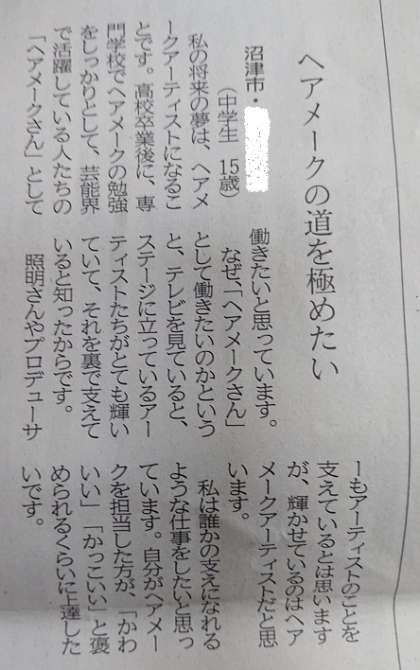 ヘアメークの道を極めたい
沼津市・
（中学生　15歳）
　私の将来の夢は、ヘアメ
ークアーティストになるこ
とです。高校卒業後に、専
門学校でヘアメークの勉強
をしっかりとして、芸能界
で活躍している人たちの
「ヘアメークさん」として
働きたいと思っています。
　なぜ、「ヘアメークさん」
として働きたいのかという
と、テレビを見ていると、
ステージに立っているアー
ティストたちがとても輝い
ていて、それを裏で支えて
いると知ったからです。
　照明さんやプロデューサ
ーもアーティストのことを
支えているとは思います
が、輝かせているのはヘア
メークアーティストだと思
います。
　私は誰かの支えになれる
ような仕事をしたいと思っ
ています。自分がヘアメー
クを担当した方が、「かわ
いい」「かっこいい」と褒
められるくらいに上達した
いです。